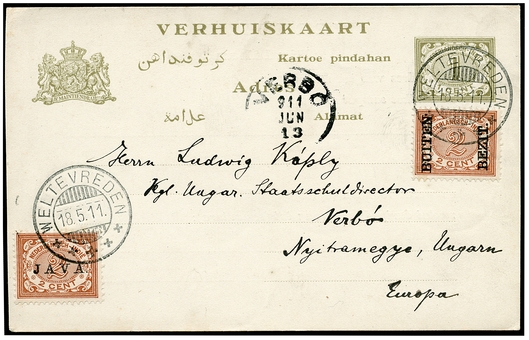 VERHUISKAART
كرتوفنداهن
Kartoe pindahan
Adres
علامة
Alamat
VERBÓ
911
JUN
13
WELTEVREDEN
18.5.11.
BUITEN BEZIT.
2
2 CENT
Herrn Ludwig Káply
Kgl. Ungar. Staatsschuldirector
Verbó
Nyitramegye, Ungarn
Europa
WELTEVREDEN
18.5.11.
JAVA
2
2 CENT